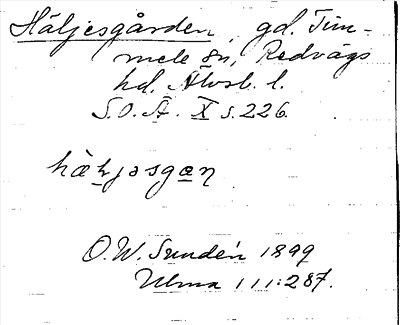 Häljesgården, gd. Tim-
mele sn, Redvägs
hd. Älvsb. l.
S.O.Ä. X s. 226.
O.W. Sundén 1899
Ulma 111:287.